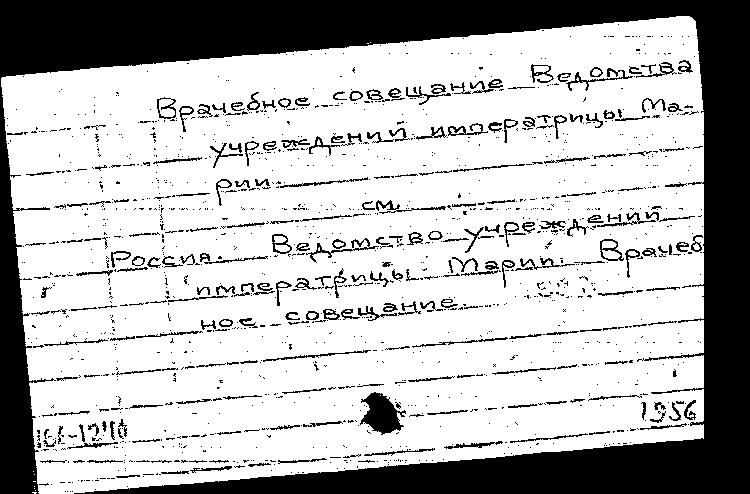 Врачебное совещание Ведомства
учреждений императрицы Ма-
рии.
см.
Россия. Ведомство учреждений
императрицы Марии. Врачеб
ное совещание.
1956